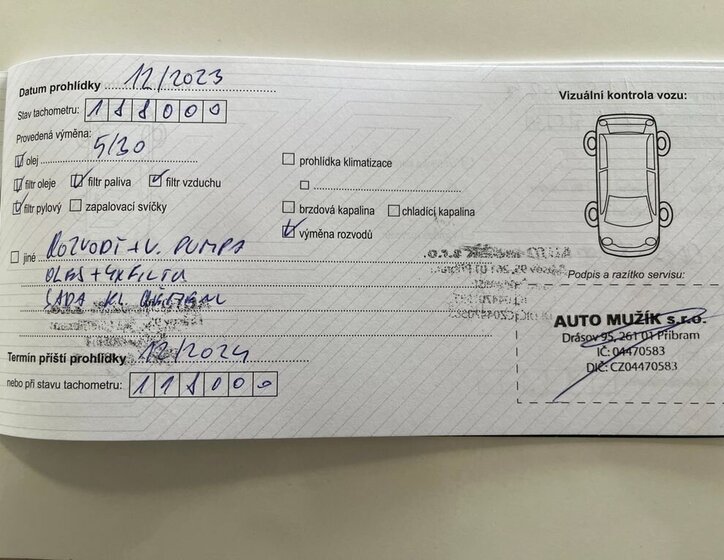 Datum prohlídky 12/2023
Stav tachometru: 188000
Provedená výměna:
olej 5/30
filtr oleje filtr paliva filtr vzduchu
filtr pylový zapalovací svíčky
jiné ROZVODY + V. PUMPA
OLEJ + 4X FILTR
SADA KL.
Termín příští prohlídky 12/2024
nebo při stavu tachometru: 118000
prohlídka klimatizace
brzdová kapalina chladící kapalina
výměna rozvodů
Vizuální kontrola vozu:
Podpis a razítko servisu:
AUTO MUŽÍK s.r.o.
Drásov 95, 261 01 Příbram
IČ: 04470583
DIČ: CZ04470583